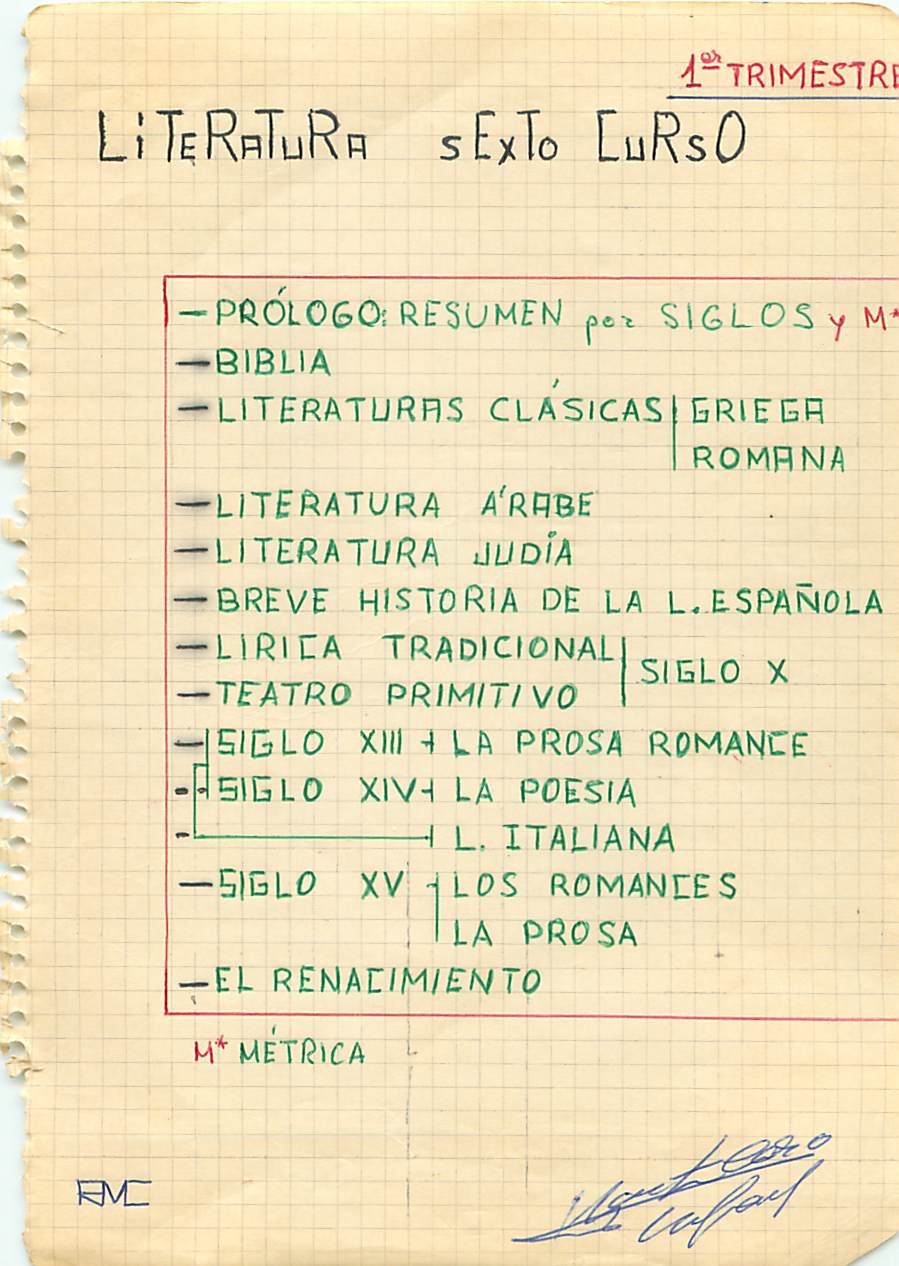 1er TRIMESTRE
LITERATURA SEXTO CURSO
- PRÓLOGO: RESUMEN por SIGLOS y M*
- BIBLIA
- LITERATURAS CLÁSICAS | GRIEGA
ROMANA
- LITERATURA ÁRABE
- LITERATURA JUDÍA
- BREVE HISTORIA DE LA L. ESPAÑOLA
- LIRICA TRADICIONAL
SIGLO X
- TEATRO PRIMITIVO
- SIGLO XIII LA PROSA ROMANCE
- SIGLO XIV LA POESIA
- L. ITALIANA
- SIGLO XV LOS ROMANCES
LA PROSA
- EL RENACIMIENTO
M* MÉTRICA
RMC